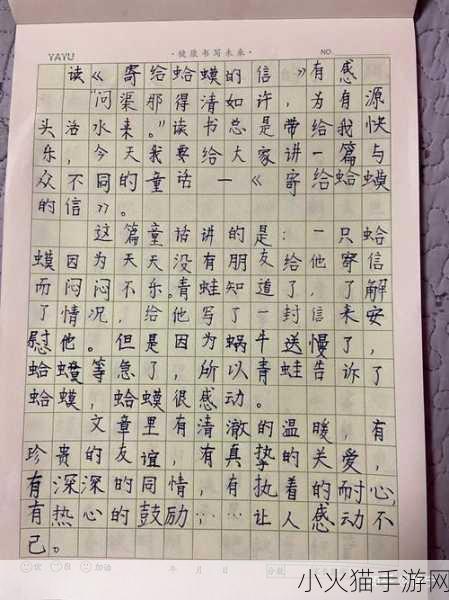 YAYU ·健康书写未来· NO.
读《寄给蛤蟆的信》有感
“问渠那得清如许，为有源
头活水来。”读书总是带给我快
乐，今天我要给大家讲一篇与
众不同的童话—《寄给蛤蟆
的信》。
这篇童话讲的是：一只蛤
蟆因为天天没有朋友给他寄信
而闷闷不乐。青蛙知道了，了解
了情况，给他写了一封信来安
慰他。但是因为蜗牛送慢了，
蛤蟆等急了，所以青蛙告诉了
蛤蟆，蛤蟆很感动。
文章里有清澈的温暖，有
珍贵的友谊，有真挚的关爱，
有深深的同情，有执着的耐心，
有热心的鼓励……让人感动不
已。
优 良 加油 年 月 日
小火猫手游网